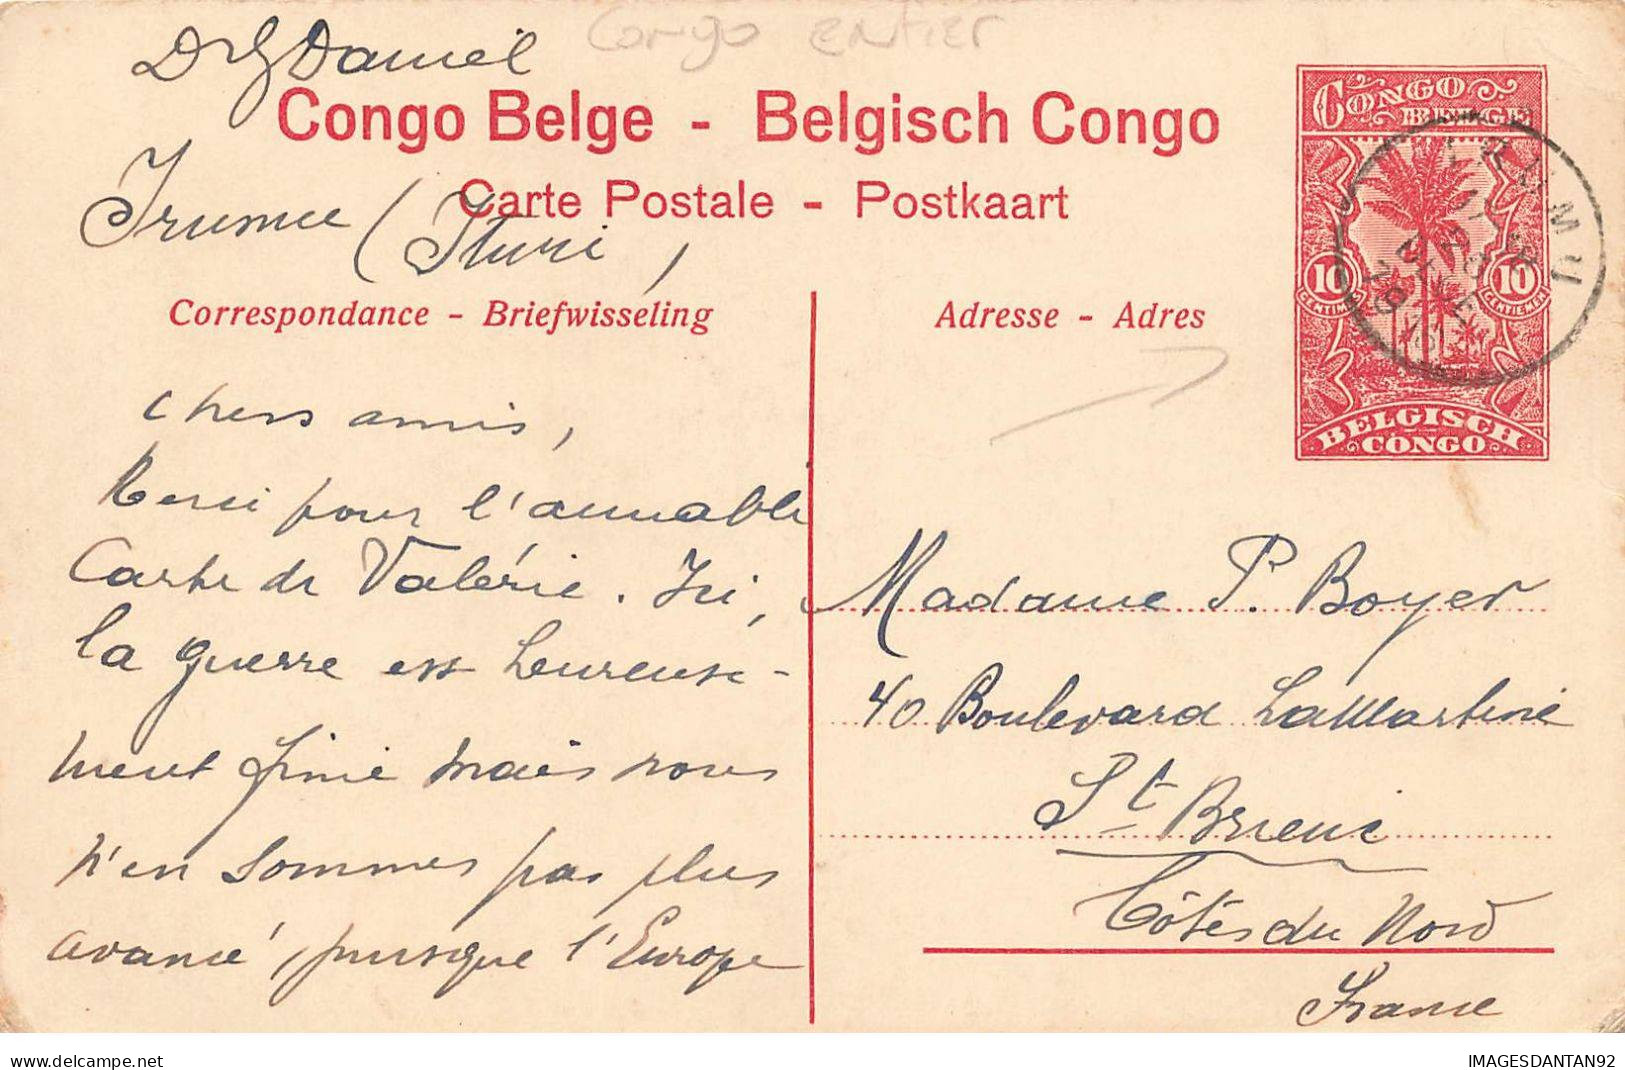 Congo entier
Dr G Daniel
Congo Belge - Belgisch Congo
Carte Postale - Postkaart
Irumu (Ituri,
Correspondance - Briefwisseling
Adresse - Adres
CONGO
BELGE
10 10
CENTIMES CENTIEMEN
BELGISCH
CONGO
IRUMU
Chers amis,
Merci pour l'aimable
Carte de Valérie. Ici,
la guerre est heureuse-
ment finie mais nous
n'en sommes pas plus
avancé, puisque l'Europe
Madame P. Boyer
40 Boulevard LaMartine
St Brieuc
Côtes du Nord
France
IMAGESDANTAN92